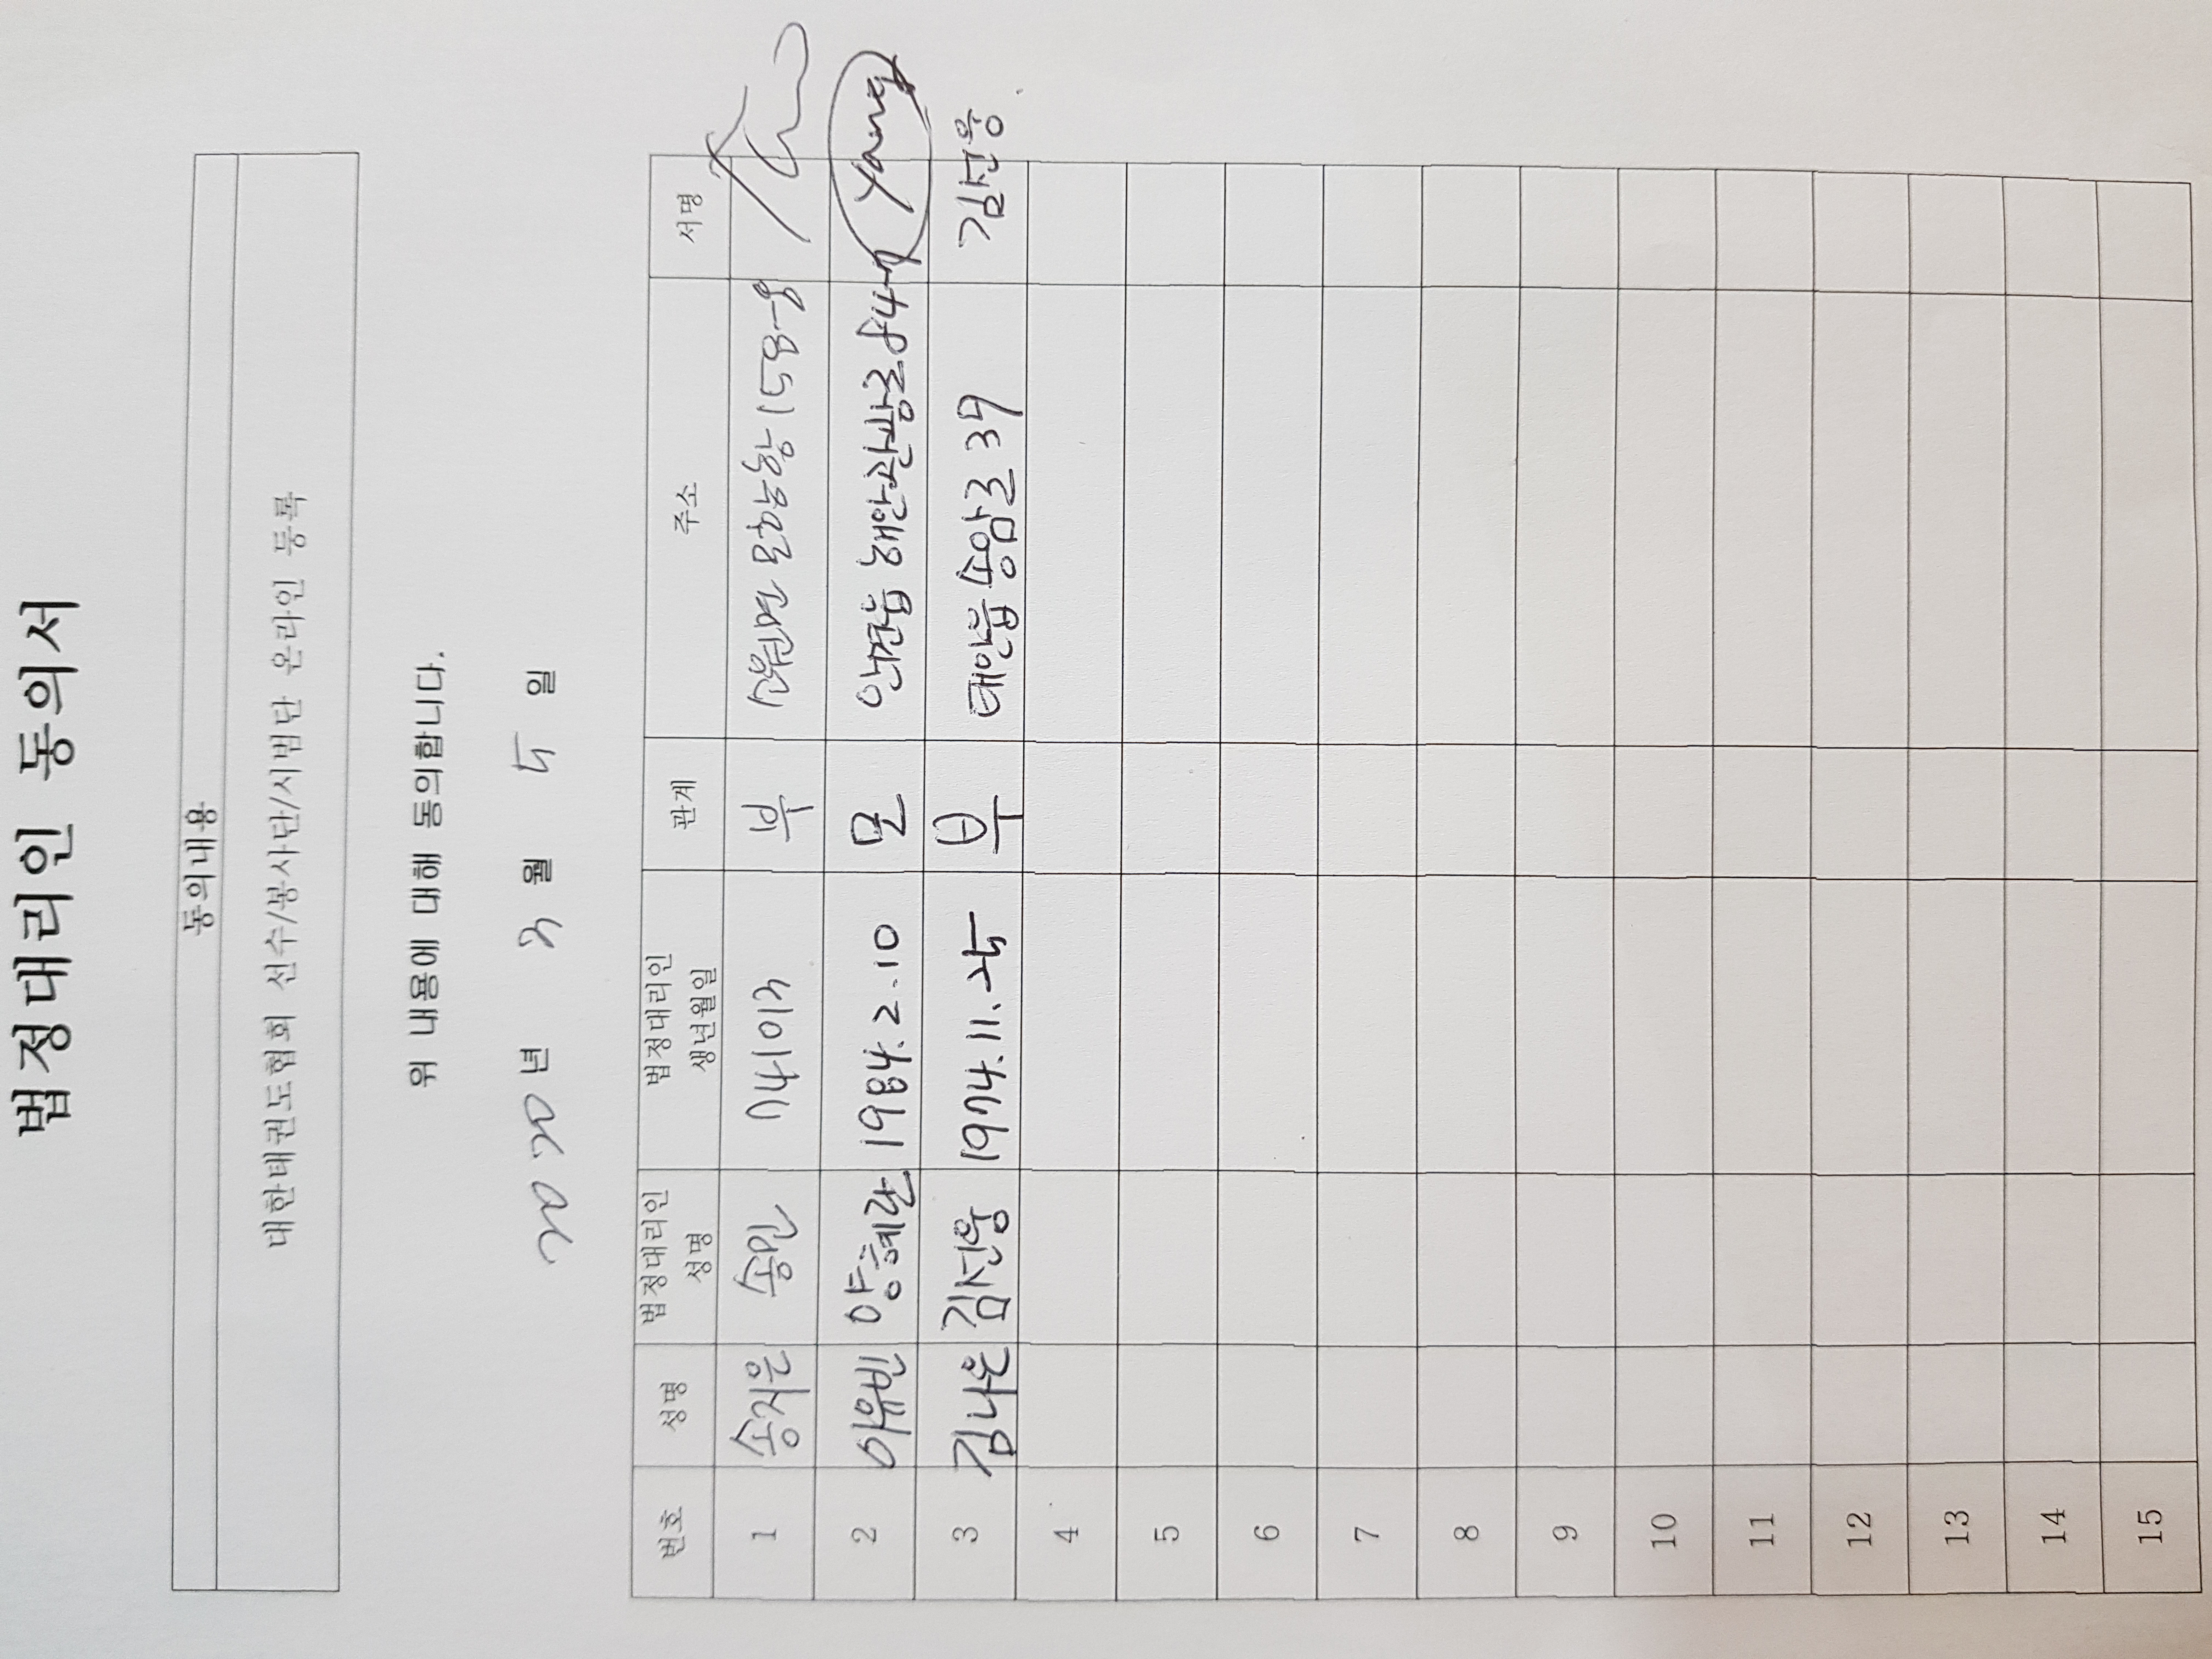 법정대리인 동의서
동의내용
대한태권도협회 선수/봉사단/시범단 온라인 등록
위 내용에 대해 동의합니다.
2020년 3월 5일
번호 성명 법정대리인 성명 법정대리인 생년월일 관계 주소 서명
1 송지은 송민 741013 부
2 이유빈 양혜란 1984.2.10 모 Yang
3 김나은 김선웅 1974.11.25 부 태안읍 송암로 39 김선웅
4
5
6
7
8
9
10
11
12
13
14
15